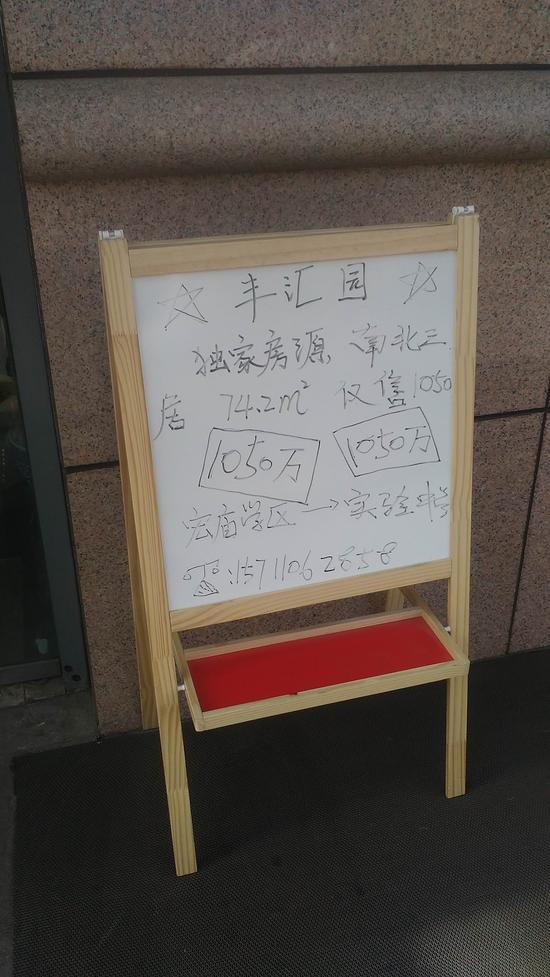 ☆ 丰汇园 ☆
独家房源 南北三
居 74.2m² 仅售1050
1050万 1050万
宏庙学区→实验
☎:15711062858